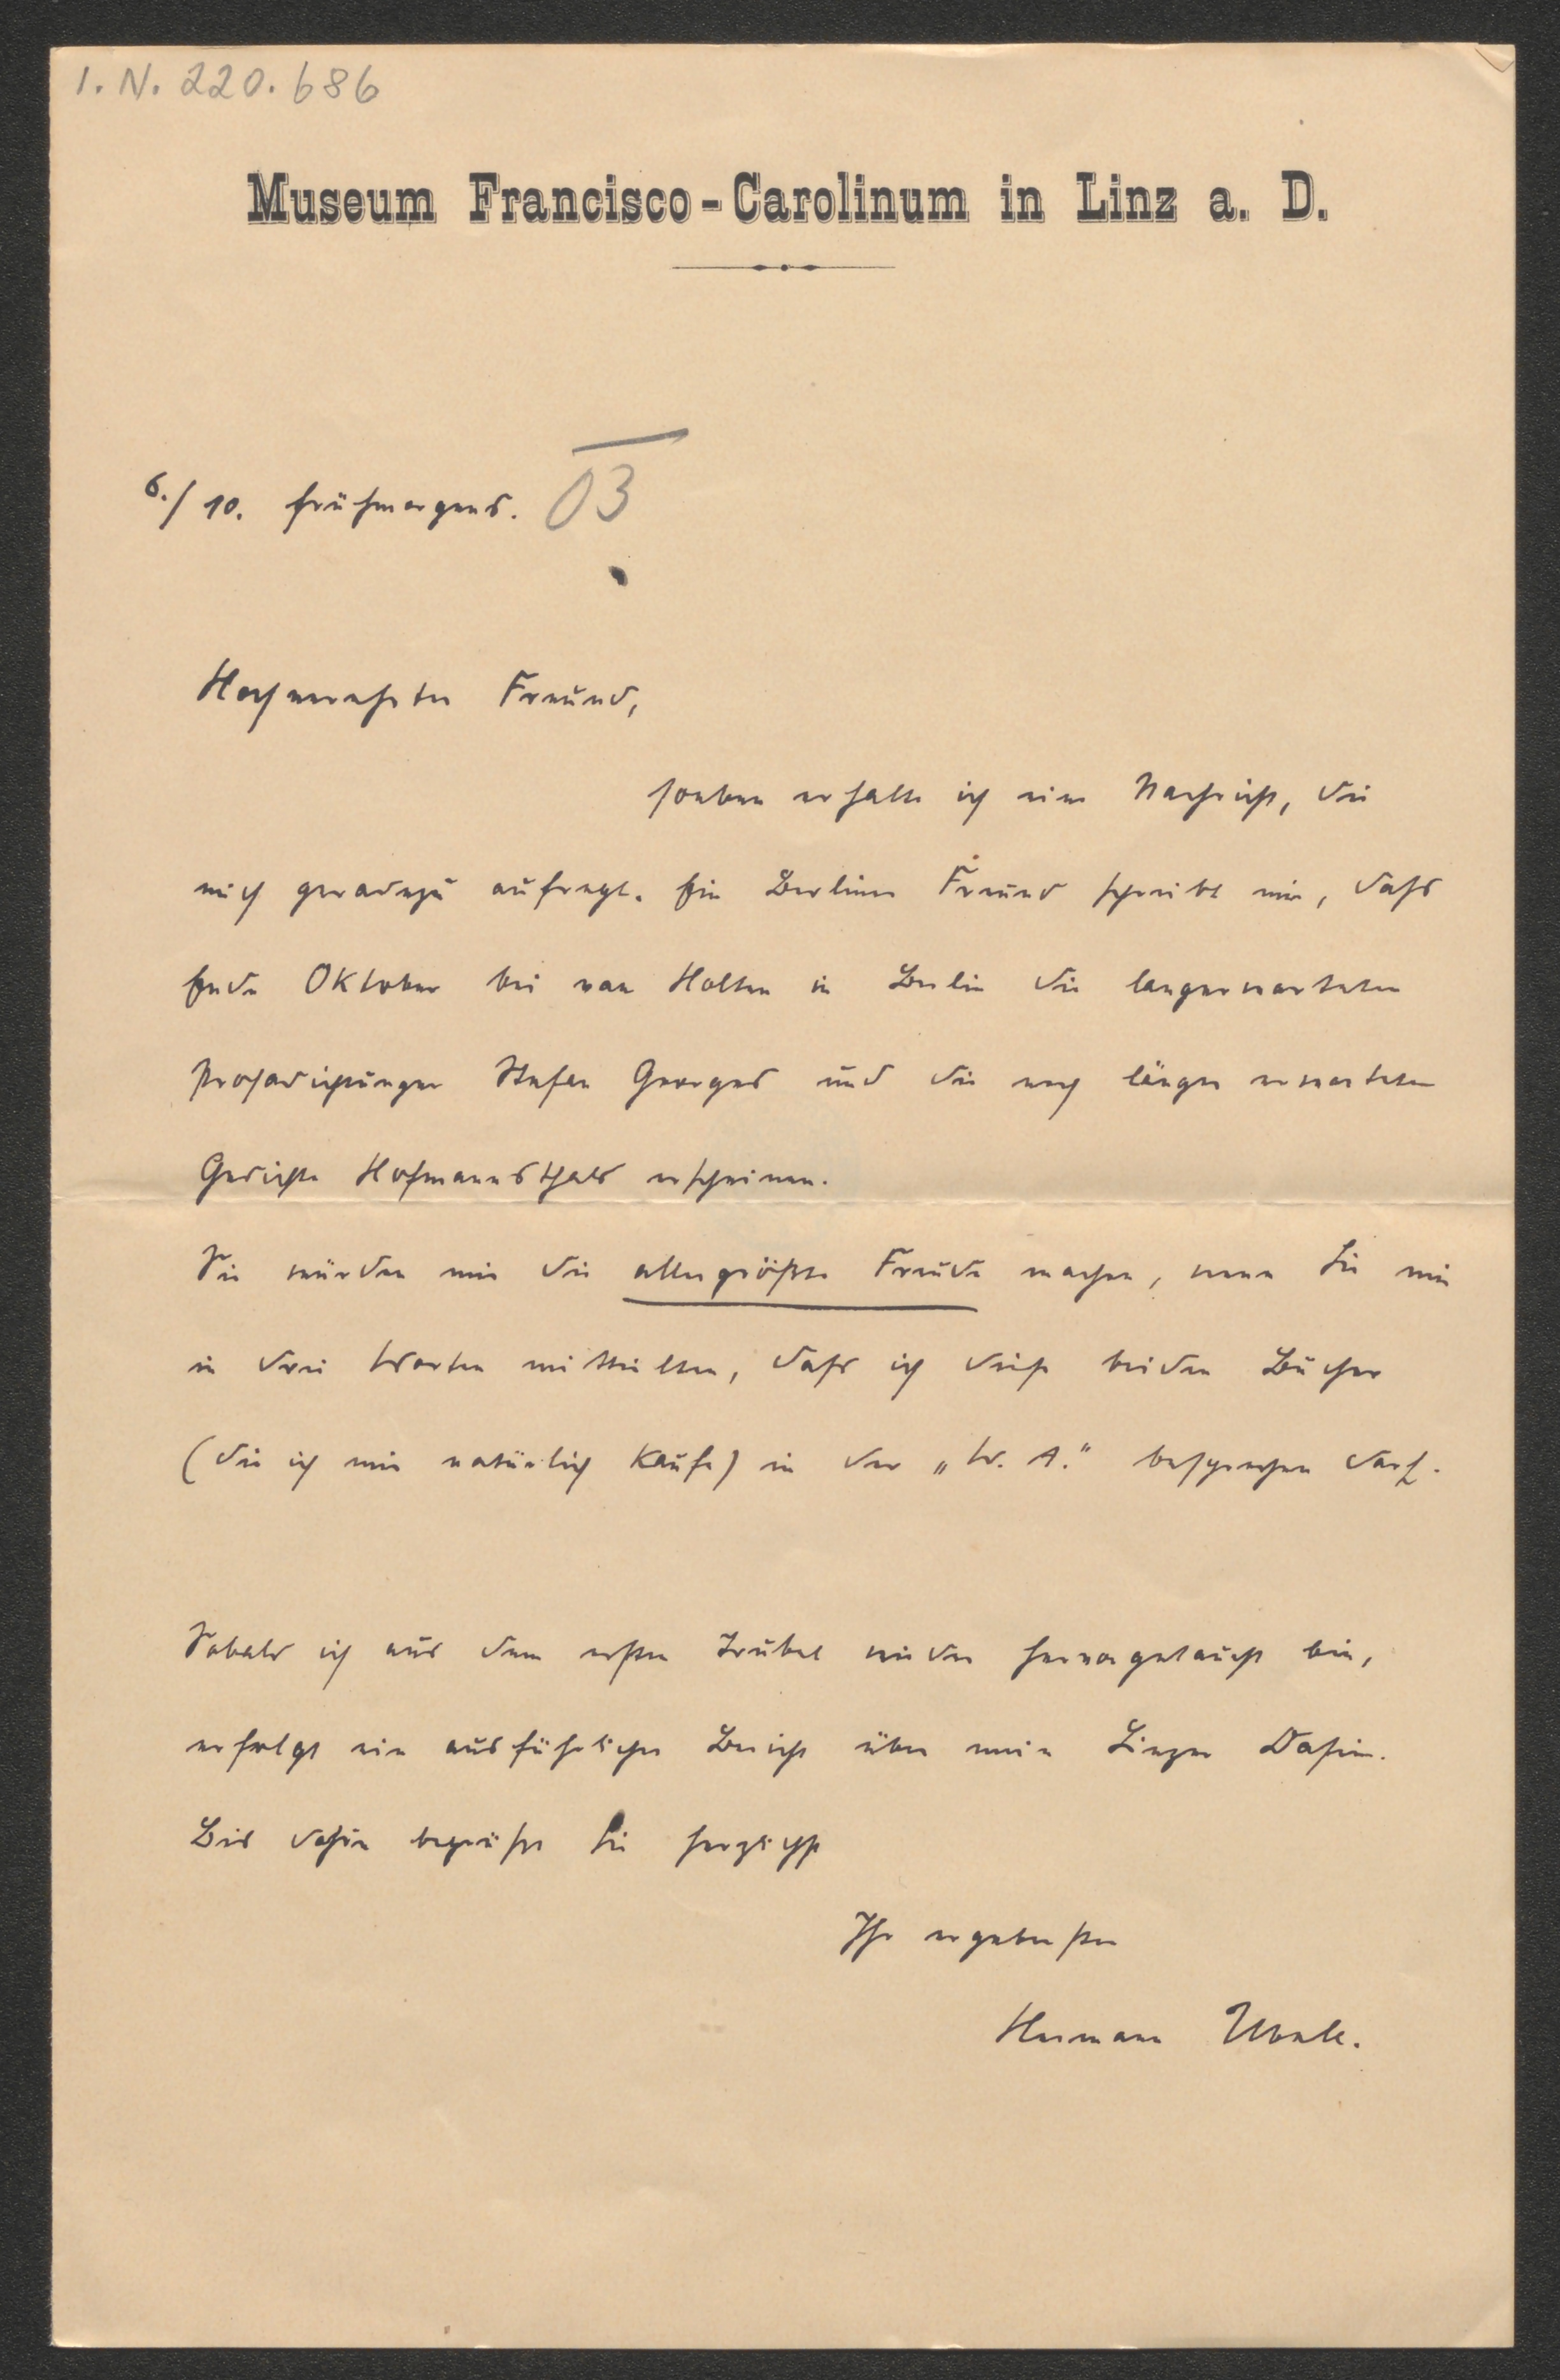 I. N. 220.686
Museum Francisco-Carolinum in Linz a. D.
6./10. frühmorgens. 03
Hochverehrter Freund,
soeben erhalte ich eine Nachricht, die
mich geradezu aufregt. Ein Berliner Freund schreibt mir, dass
Ende Oktober bei van Holten in Berlin die langerwarteten
Prosadichtungen Stefan Georges und die noch länger erwarteten
Gedichte Hofmannsthals erscheinen.
Sie würden mir die allergrößte Freude machen, wenn Sie mir
in drei Worten mitteilten, dass ich diese beiden Bücher
(die ich mir natürlich kaufe) in der „W. A.“ besprechen darf.
Sobald ich aus dem ersten Trubel wieder hervorgetaucht bin,
erfolgt ein ausführlicher Bericht über mein Linzer Dasein.
Bis dahin begrüßt Sie herzlichst
Ihr ergebenster
Hermann Ubell.